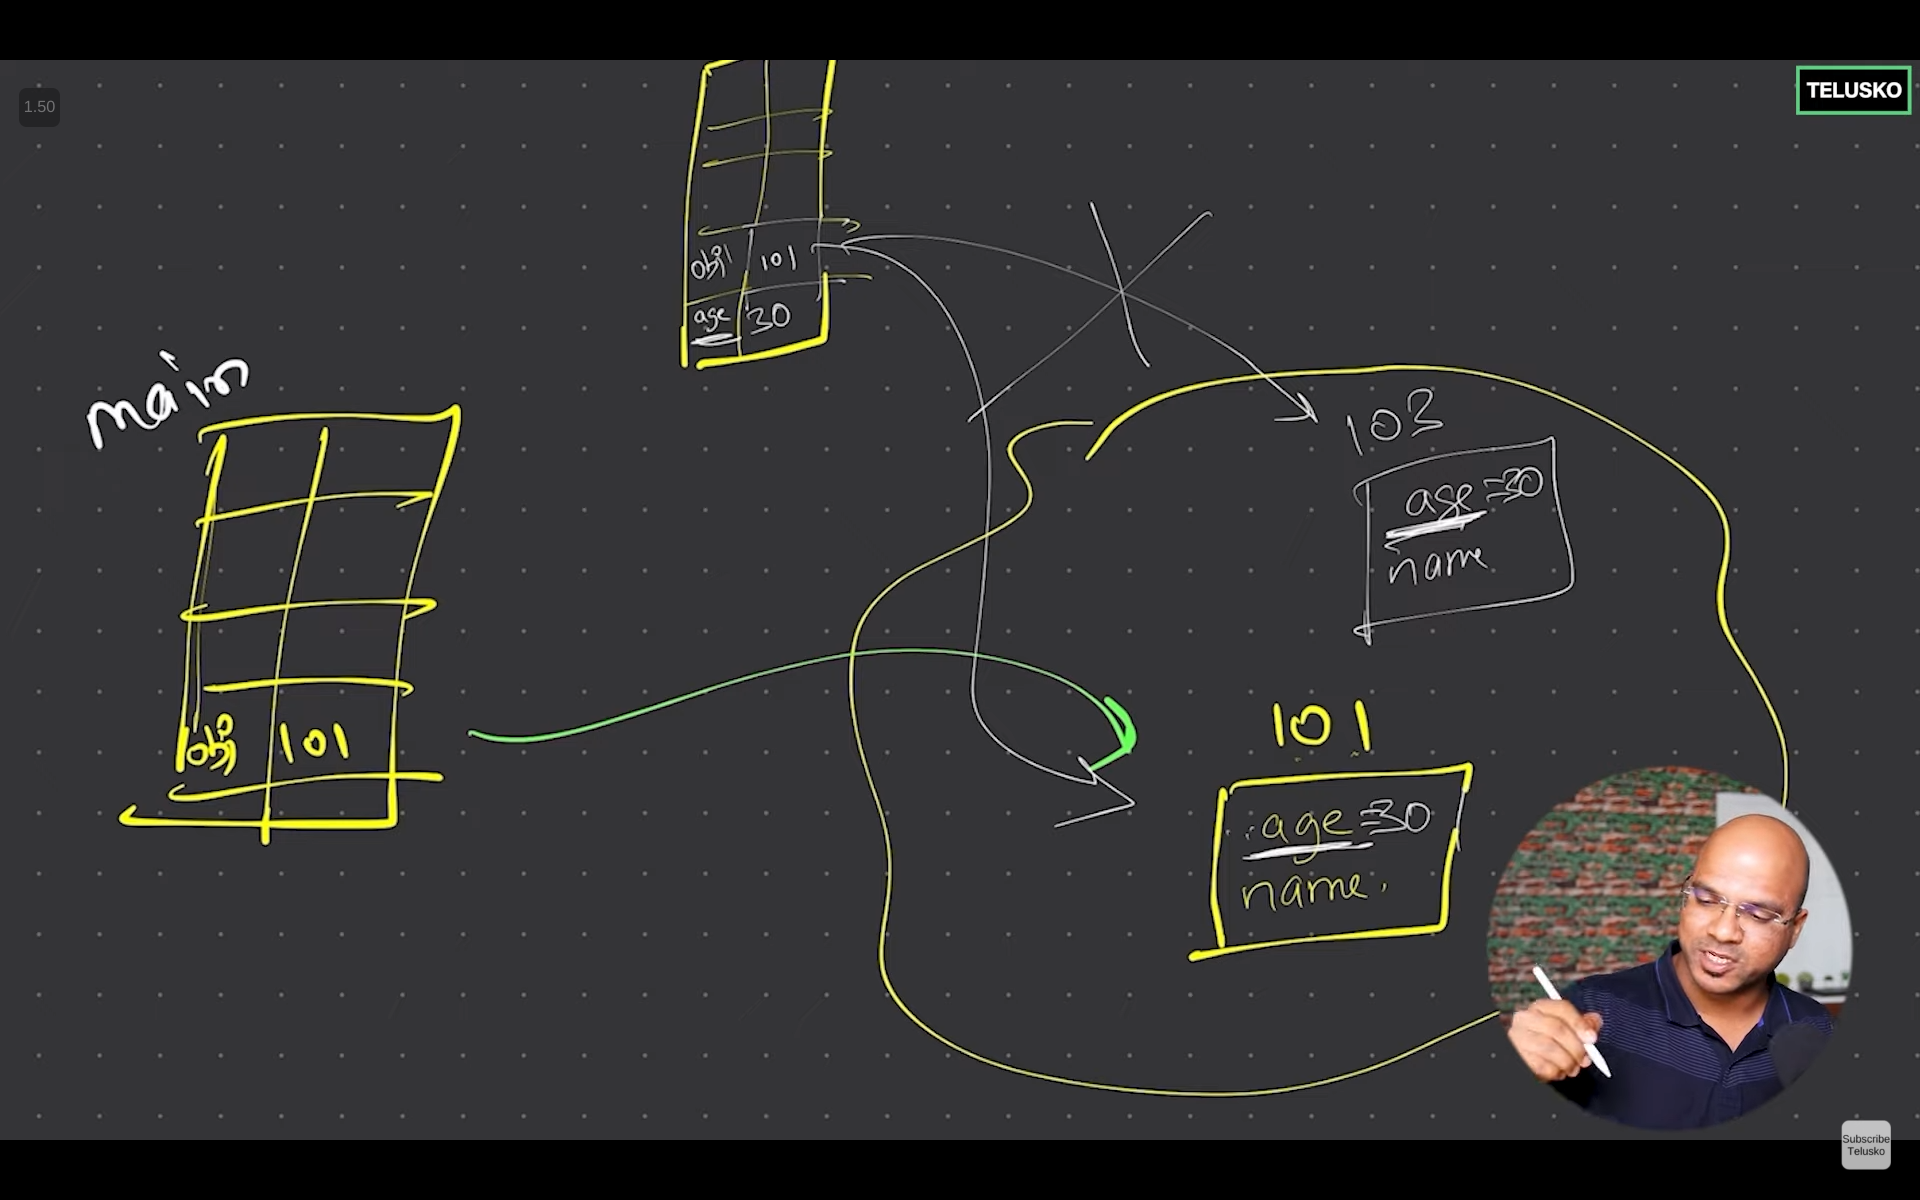 1.50
TELUSKO
obj1 101
age 30
main
103
age=30
name
obj 101
101
age=30
name.
Subscribe
Telusko